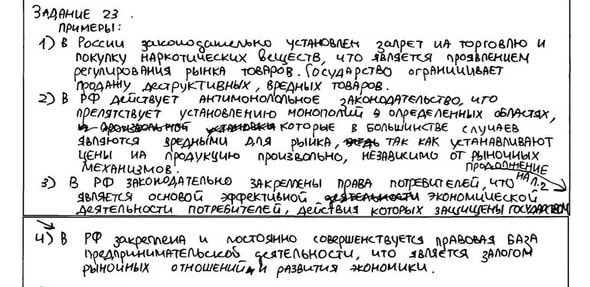 ЗАДАНИЕ 23.
ПРИМЕРЫ:
1) В России законодательно установлен запрет на торговлю и
покупку наркотических веществ, что является проявлением
регулирования рынка товаров. Государство ограничивает
продажу деструктивных, вредных товаров.
2) В РФ действует антимонопольное законодательство, что
препятствует установлению монополий в определенных областях,
и произвольной установки которые в большинстве случаев
являются вредными для рынка, ведь так как устанавливают
цены на продукцию произвольно, независимо от рыночных
механизмов.
ПРОДОЛЖЕНИЕ
НА Л.2
3) В РФ законодательно закреплены права потребителей, что
является основой эффективной деятельности экономической
деятельности потребителей, действия которых защищены государством
4) В РФ закреплена и постоянно совершенствуется правовая база
предпринимательской деятельности, что является залогом
рыночных отношений и развития экономики.